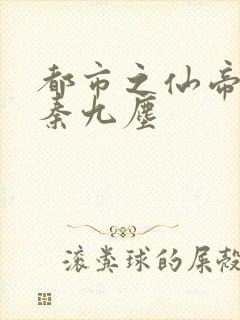 都市之仙帝
秦九尘
滚粪球的屎殻